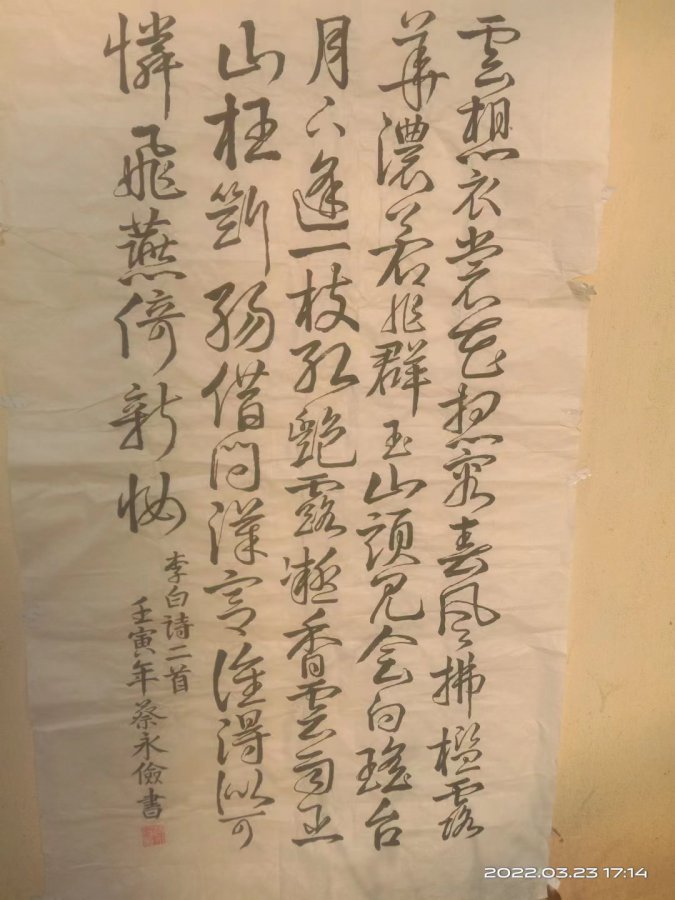 雲想衣裳花想容春風拂檻露
華濃若非群玉山頭見会向瑤台
月下逢一枝紅艷露凝香雲雨巫
山枉斷腸借問漢宮誰得似可
憐飛燕倚新妝
李白詩二首
壬寅年蔡永儉書
2022.03.23 17:14